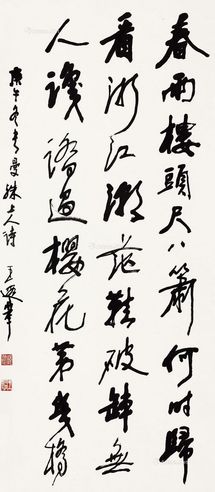 春雨樓頭尺八簫何時歸
看浙江潮芒鞋破缽無
人識踏過櫻花第幾橋
庚午冬書曼殊上人詩 王遐舉